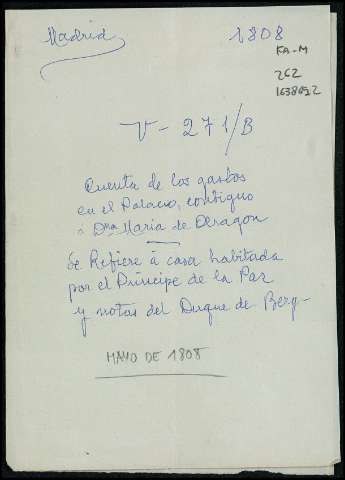 Madrid 1808
KA-M
262
V-271/B
Cuenta de los gastos
en el Palacio, contiguo
á Dña Maria de Aragon
Se Refiere á casa habitada
por el Príncipe de la Paz
y notas del Duque de Berg-
MAYO DE 1808